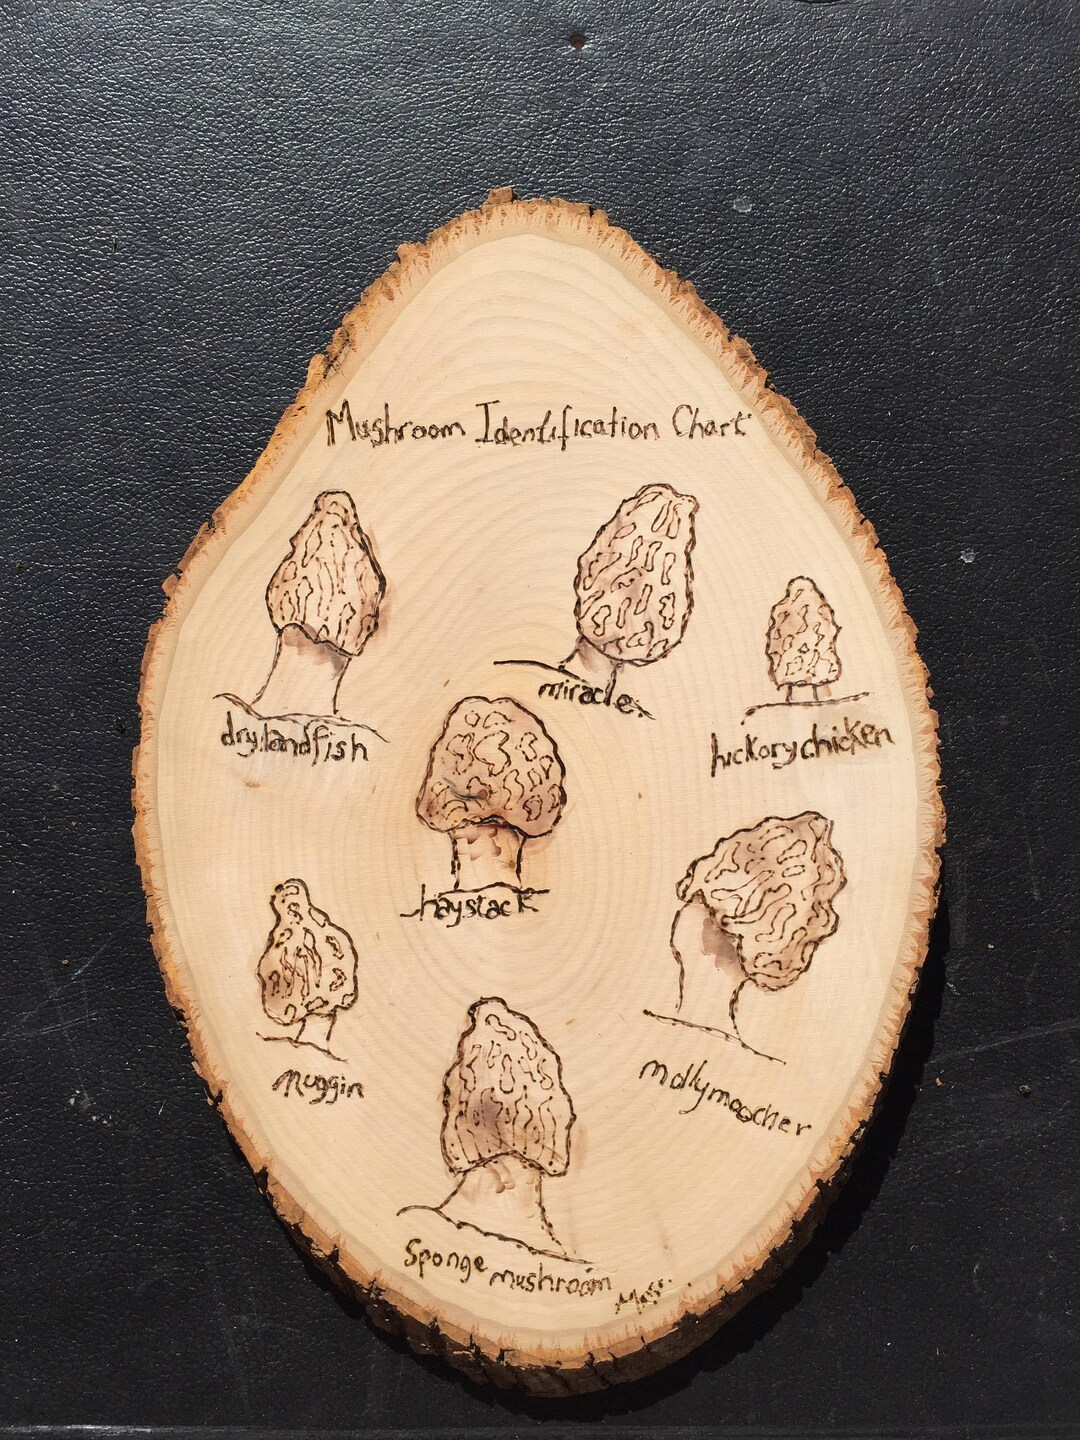 Mushroom Identification Chart
dry.landfish
miracle.
hickorychicken
haystack
muggin
mollymoocher
Sponge mushroom